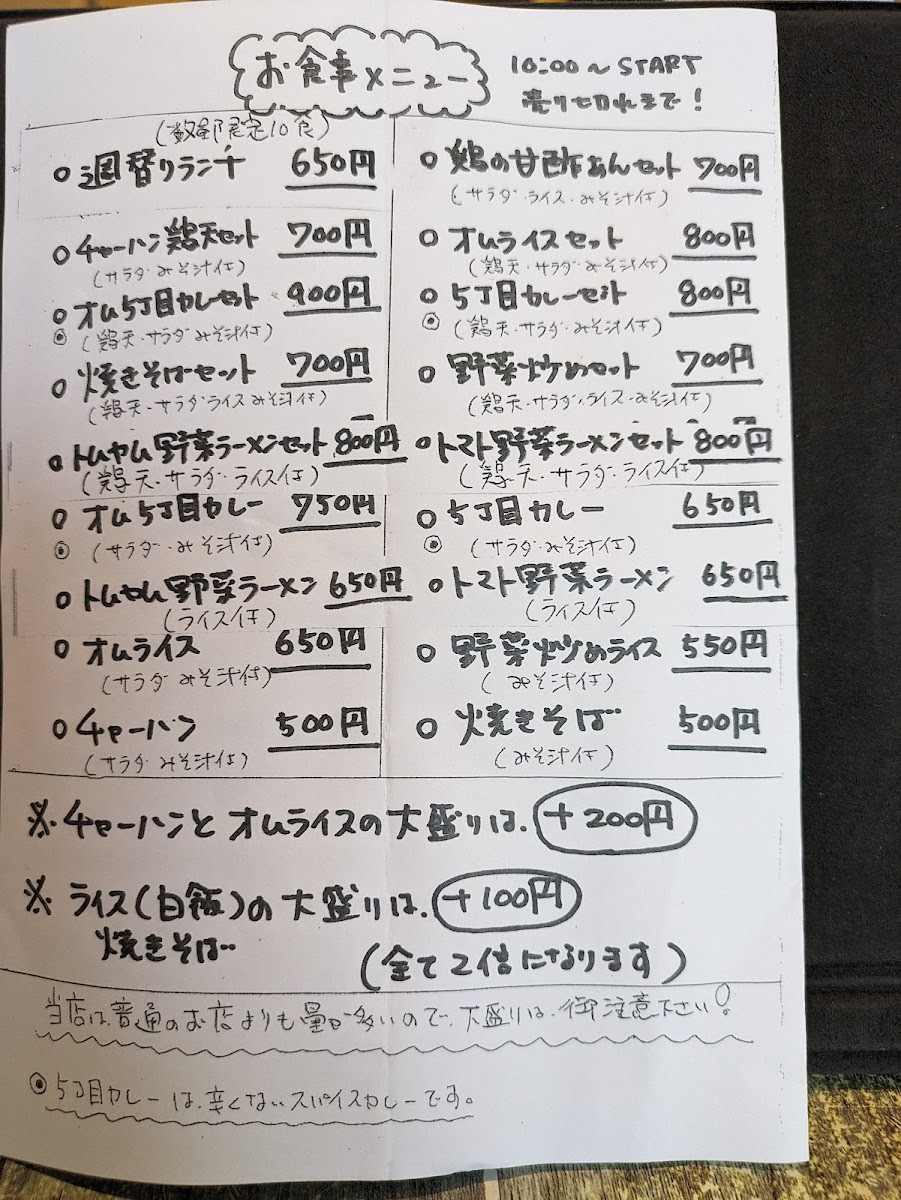 お食事メニュー
10:00～START
売り切れまで！
(数部限定10食)
○週替りランチ 650円
○チャーハン鶏天セット 700円
(サラダみそ汁付)
○オム5丁目カレーセット 900円
◉(鶏天・サラダみそ汁付)
○焼きそばセット 700円
(鶏天・サラダ・ライスみそ汁付)
○トムヤム野菜ラーメンセット 800円
(鶏天・サラダ・ライス付)
○オム5丁目カレー 750円
◉(サラダ・みそ汁付)
○トムヤム野菜ラーメン 650円
(ライス付)
○オムライス 650円
(サラダみそ汁付)
○チャーハン 500円
(サラダみそ汁付)
○鶏の甘酢あんセット 700円
(サラダ・ライス・みそ汁付)
○オムライスセット 800円
(鶏天・サラダ・みそ汁付)
○5丁目カレーセット 800円
◉(鶏天・サラダ・みそ汁付)
○野菜炒めセット 700円
(鶏天・サラダ・ライス・みそ汁付)
○トマト野菜ラーメンセット 800円
(鶏天・サラダ・ライス付)
○5丁目カレー 650円
◉(サラダ・みそ汁付)
○トマト野菜ラーメン 650円
(ライス付)
○野菜炒めライス 550円
(みそ汁付)
○焼きそば 500円
(みそ汁付)
※チャーハンとオムライスの大盛りは、+200円
※ライス(白飯)の大盛りは、+100円
焼きそば
(全て2倍になります)
当店は普通のお店よりも量が多いので、大盛りは、御注意下さい！
◉5丁目カレーは、辛くないスパイスカレーです。